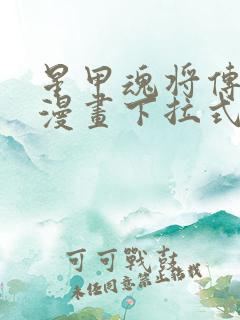 星甲魂将傳
漫畫下拉式
可可戰鼓
未经同意禁止转载